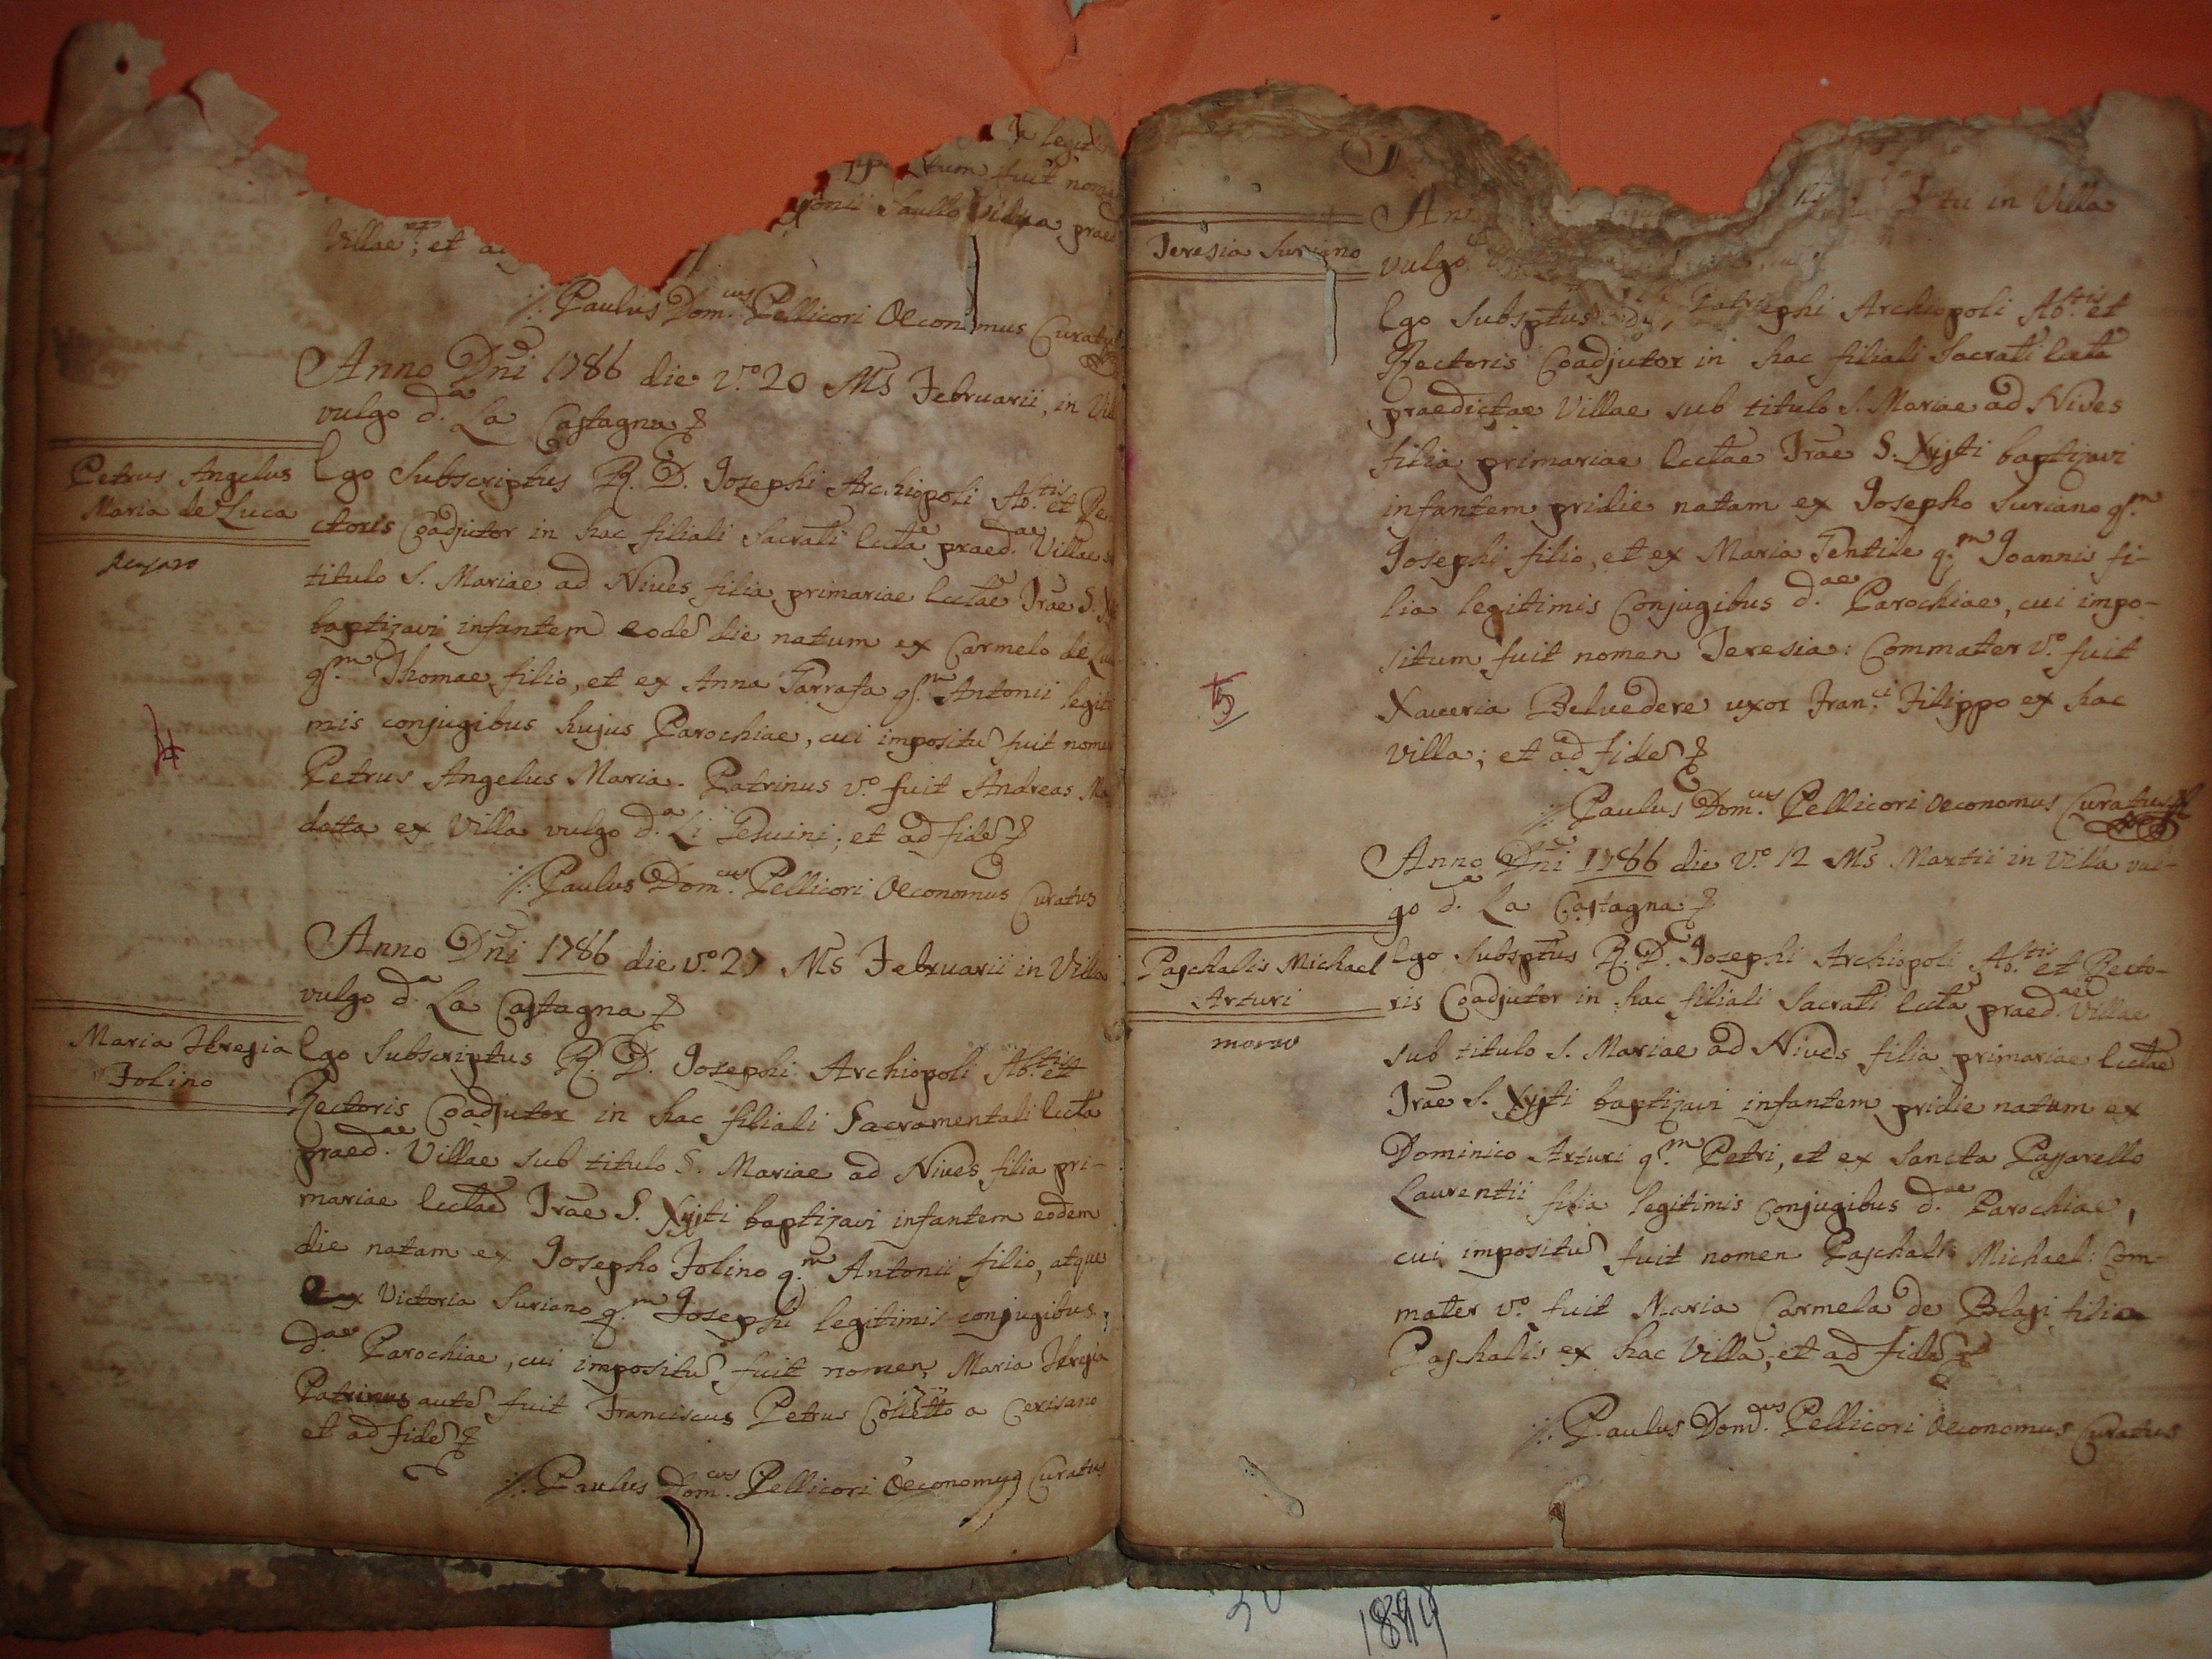 legit
tum fuit nomen
Saullo vidua praed
Villae; et
Paulus Dom.cus Pellicori Oeconomus Curatus
Anno Dñi 1786 die v.º 20 Ms Februarii, in Vil
vulgo d.a La Castagna
Petrus Angelus
Maria de Luca
Ego Subscriptus R. D. Josephi Archiopoli Ab.tis et Re
ctoris Coadjutor in hac filiali Sacrati Ecctã praed.ae Villae
titulo S. Mariae ad Nives filia primariae Ecctae Trae S.
baptizavi infantem eodẽ die natum ex Carmelo de Lu
qm Thomae filio, et ex Anna Tarrafa qm Antonii legiti
mis conjugibus hujus Parochiae, cui impositũ fuit nomen
Petrus Angelus Maria. Patrinus v.º fuit Andreas
datta ex Villa vulgo d.a Li Pesuini; et ad fidẽ
Paulus Dom.cus Pellicori Oeconomus Curatus
Anno Dñi 1786 die v.º 27 Ms Februarii in Villa
vulgo d.a La Castagna
Maria Theresia
Iolino
Ego Subscriptus R. D. Josephi Archiopoli Ab.tis et
Rectoris Coadjutor in hac filiali Sacramentali Ecctã
praed.ae Villae sub titulo S. Mariae ad Nives filia pri-
mariae Ecctae Trae S. Xysti baptizavi infantem eodem
die natam ex Josepho Iolino q.m Antonii filio, atque
ex Victoria Suriano q.m Josephi legitimis conjugibus
d.ae Parochiae, cui impositũ fuit nomen Maria Theresia
Patrinus autẽ fuit Franciscus Petrus Colletto a Cerisano
et ad fidẽ
Paulus Dom.cus Pellicori Oeconomus Curatus
in Villa
Teresia Suriano
vulgo
Ego Subsptus Josephi Archiopoli Ab.tis et
Rectoris Coadjutor in hac filiali Sacrati Ecctã
praedictae Villae sub titulo S. Mariae ad Nives
filia primariae Ecctae Trae S. Xysti baptizavi
infantem pridie natam ex Josepho Suriano q.m
Josephi filio, et ex Maria Pentile q.m Joannis fi-
lia legitimis Conjugibus d.ae Parochiae, cui impo-
situm fuit nomen Teresia: Commater v.º fuit
Xaveria Belvedere uxor Fran.ci Filippo ex hac
villa; et ad fidẽ
5
Paulus Dom.cus Pellicori Oeconomus Curatus
Anno Dñi 1786 die v.º 12 Ms Martii in Villa vul-
go d.a La Castagna
Paschalis Michael
Arturi
Ego Subsptus R. D. Josephi Archiopoli Ab.tis et Recto-
ris Coadjutor in hac filiali Sacrati Ecctã praed.ae Villae
sub titulo S. Mariae ad Nives filia primariae Ecctae
Trae S. Xysti baptizavi infantem pridie natum ex
Dominico Arturi q.m Petri, et ex Sancta Passarello
Laurentii filia legitimis conjugibus d.ae Parochiae,
cui impositũ fuit nomen Paschalis Michael: Com-
mater v.º fuit Maria Carmela de Blasi filia
Paschalis ex hac Villa; et ad fidẽ
Paulus Dom.cus Pellicori Oeconomus Curatus